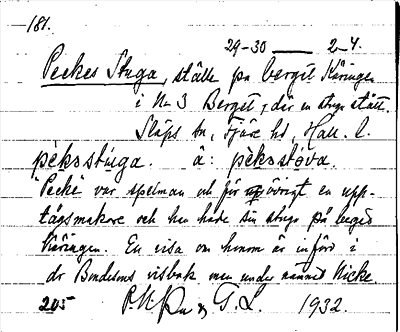 181.
29-30 — 2-4.
Peckes Stuga, ställe på berget Kåringen
i No 3 Berget, där en stuga stått.
Släps sn, Fjäre hd, Hall. l.
pèksstúga. ä: pèkstöva.
Pecke var spelman och för övrigt en upp-
tågsmakare och han hade sin stuga på berget
Kåringen. En visa om honom är införd i
dr Bondesons visbok men under namnet Nicke.
205 G. L. 1932.